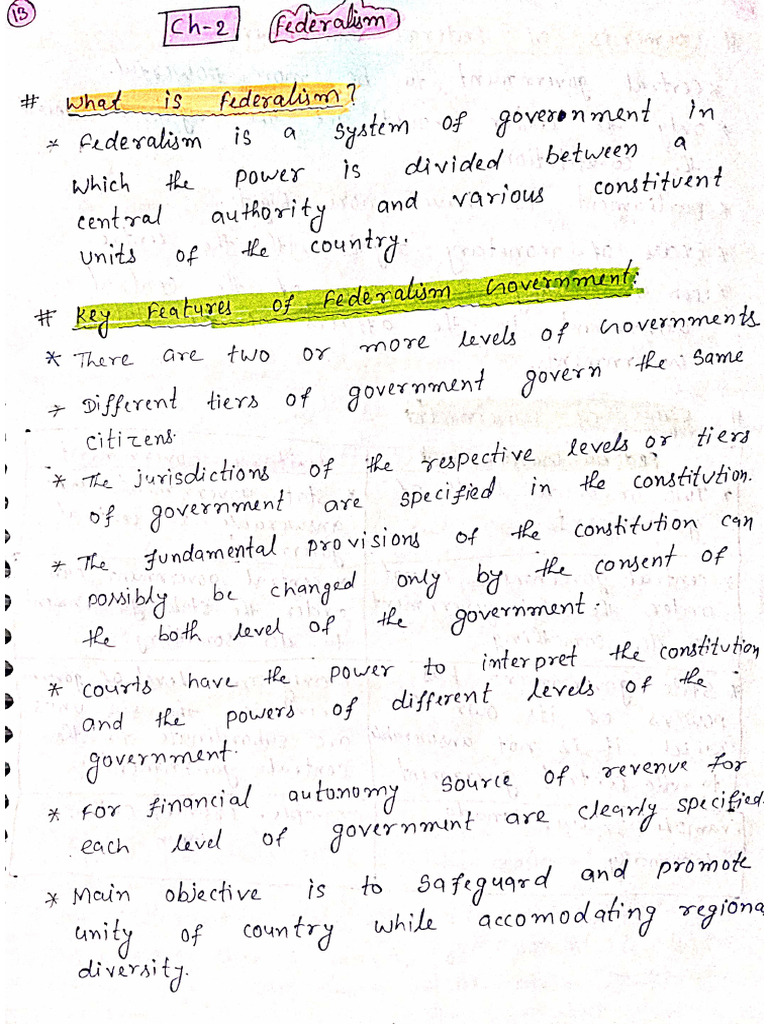 13
Ch-2 Federalism
# What is Federalism?
* Federalism is a system of government in
which the power is divided between a
central authority and various constituent
units of the country.
# Key Features of Federalism Government:
* There are two or more levels of Governments
* Different tiers of government govern the same
citizens.
* The jurisdictions of the respective levels or tiers
of government are specified in the constitution.
* The fundamental provisions of the constitution can
possibly be changed only by the consent of
the both level of the government.
* Courts have the power to interpret the constitution
and the powers of different levels of the
government.
* For financial autonomy source of revenue for
each level of government are clearly specified.
* Main objective is to safeguard and promote
unity of country while accomodating regiona
diversity.